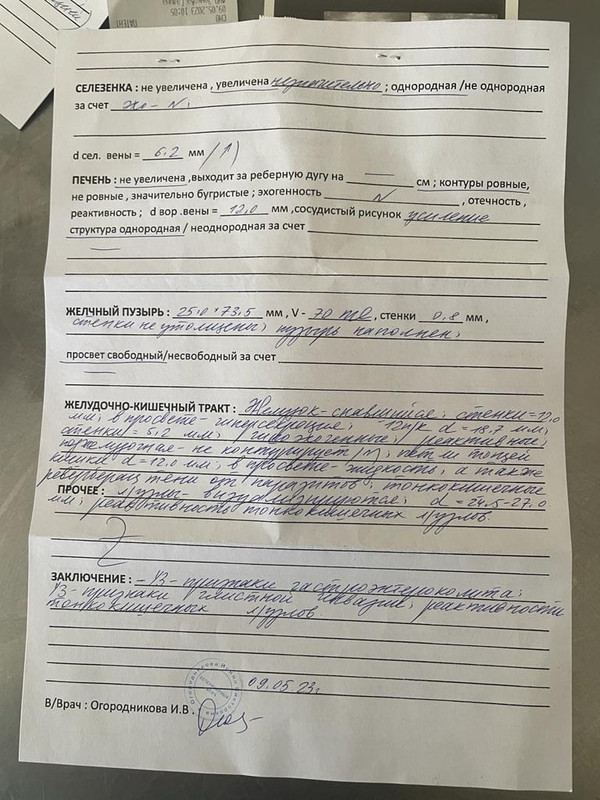 09.05.2023 10:05
СЕЛЕЗЕНКА : не увеличена , увеличена незначительно ; однородная /не однородная
за счет эхо - N;
d сел. вены = 6.2 мм (↑)
ПЕЧЕНЬ : не увеличена ,выходит за реберную дугу на — см ; контуры ровные,
не ровные , значительно бугристые ; эхогенность N , отечность ,
реактивность ; d вор .вены = 12.0 мм ,сосудистый рисунок усиление
структура однородная / неоднородная за счет
—
ЖЕЛЧНЫЙ ПУЗЫРЬ : 25.0*73.5 мм , V - 20 ml , стенки 0.8 мм ,
стенки не утолщены; пузырь наполнен;
просвет свободный/несвободный за счет
—
ЖЕЛУДОЧНО-КИШЕЧНЫЙ ТРАКТ : Желудок - спавшийся; стенки = 12.0
мм; в просвете - гиперсекреция; 12п/к d = 18.7 мм;
стенки = 5.2 мм; гипоэхогенные; реактивные;
поджелудочная - не контурирует /N; петли тощей
кишки d = 12.0 мм; в просвете - жидкость, а также
тени от паразитов; тонкокишечные
ПРОЧЕЕ : л/узлы - визуализируются; d = 24.5-27.0
мм; реактивность тонкокишечных л/узлов.
ЗАКЛЮЧЕНИЕ : - УЗ - признаки гастроэнтероколита;
УЗ - признаки глистной инвазии; реактивности
тонкокишечных л/узлов.
09.05.23г
В/Врач : Огородникова И.В .